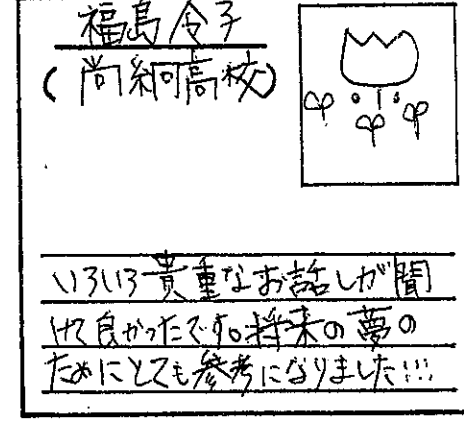 福島令子
(尚絅高校)
いろいろ貴重なお話しが聞
けて良かったです。将来の夢の
ためにとても参考になりました!!!